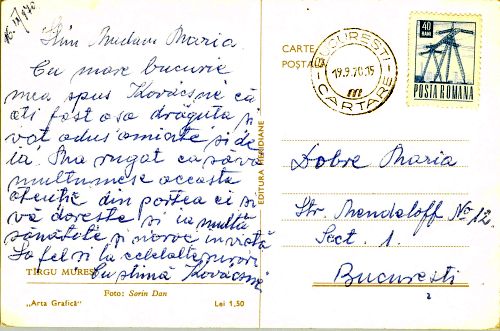 16.IX/970
Stim. Madam Maria
Cu mare bucurie
mea spus Kovacsné că
ati fost asa drăguta si
vat adus aminte si de
ia. Ma rugat ca să vă
multumesc aceasta
atentie din partea ei si
vă doreste si ia multă
sănătate si noroc in viată
La fel si la celelalte surori
Cu stimă Kovacsné
TÎRGU MUREȘ
Foto: Sorin Dan
„Arta Grafică”
Lei 1,50
EDITURA MERIDIANE
CARTE
POȘTALĂ
BUCUREȘTI
19.9.70.15
CARTARE
40
BANI
POSTA ROMANA
Dobre Maria
Str. Mendeleeff No 12.
Sect. 1.
Bucuresti